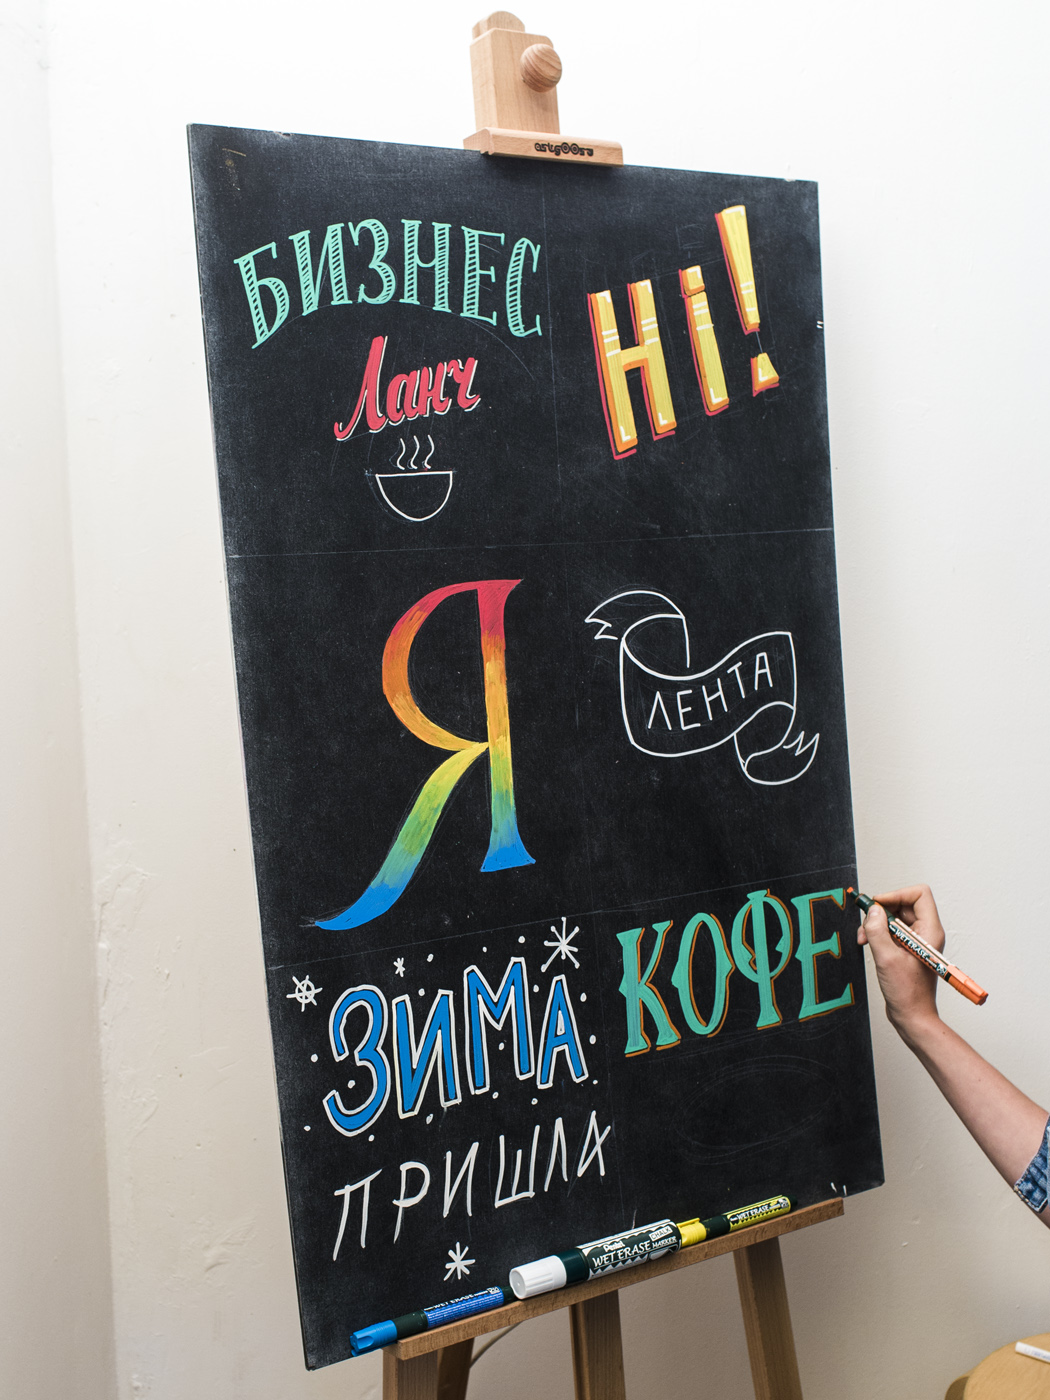 БИЗНЕС
Ланч
Hi!
Я
ЛЕНТА
ЗИМА
ПРИШЛА
КОФЕ
Pentel
WET ERASE
MARKER
WET ERASE
WET ERASE
WET ERASE